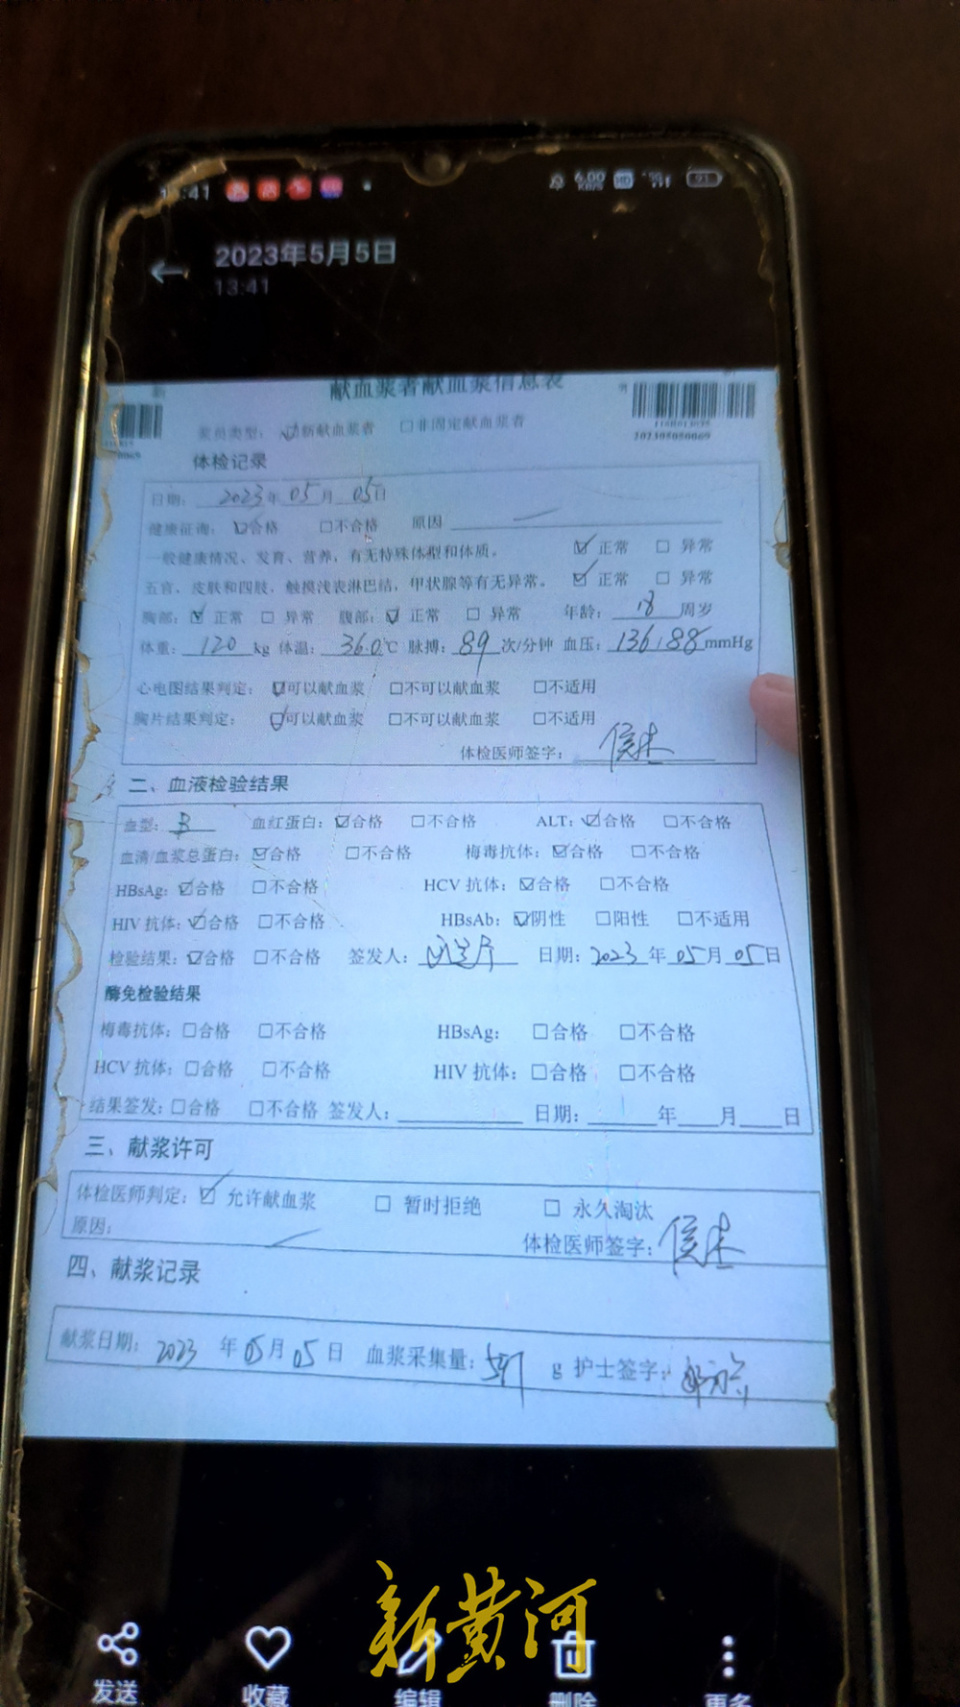 6.00
KB/s HD
91
2023年5月5日
13:41
献血浆者献血浆信息表
浆员类型： ☑新献血浆者 □非固定献血浆者
体检记录
日期： 2023年 05月 05日
健康征询： ☑合格 □不合格 原因
一般健康情况、发育、营养，有无特殊体型和体质。 ☑ 正常 □ 异常
五官、皮肤和四肢，触摸浅表淋巴结，甲状腺等有无异常。 ☑ 正常 □ 异常
胸部： ☑ 正常 □ 异常 腹部： ☑ 正常 □ 异常 年龄： 18 周岁
体重： 120 kg 体温： 36.0℃ 脉搏： 89 次/分钟 血压： 136/88 mmHg
心电图结果判定： ☑可以献血浆 □不可以献血浆 □不适用
胸片结果判定： ☑可以献血浆 □不可以献血浆 □不适用
体检医师签字：
二、血液检验结果
血型： B 血红蛋白： ☑合格 □不合格 ALT： ☑合格 □不合格
血清/血浆总蛋白： ☑合格 □不合格 梅毒抗体： ☑合格 □不合格
HBsAg： ☑合格 □不合格 HCV 抗体： ☑合格 □不合格
HIV 抗体： ☑合格 □不合格 HBsAb： ☑阴性 □阳性 □不适用
检验结果： ☑合格 □不合格 签发人： 日期： 2023 年 05 月 05 日
酶免检验结果
梅毒抗体： □合格 □不合格 HBsAg： □合格 □不合格
HCV 抗体： □合格 □不合格 HIV 抗体： □合格 □不合格
结果签发： □合格 □不合格 签发人： 日期： 年 月 日
三、献浆许可
体检医师判定： ☑ 允许献血浆 □ 暂时拒绝 □ 永久淘汰
原因： 体检医师签字：
四、献浆记录
献浆日期： 2023 年 05 月 05 日 血浆采集量： g 护士签字：
新黄河
发送 收藏 编辑 删除 更多